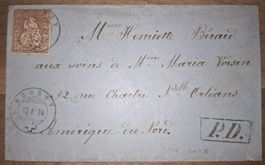 Mme Henriette Béraud
aux soins de Mme Maria Voisin
92 rue Chartres Nelle Orléans
Amérique du Nord.
P.D.